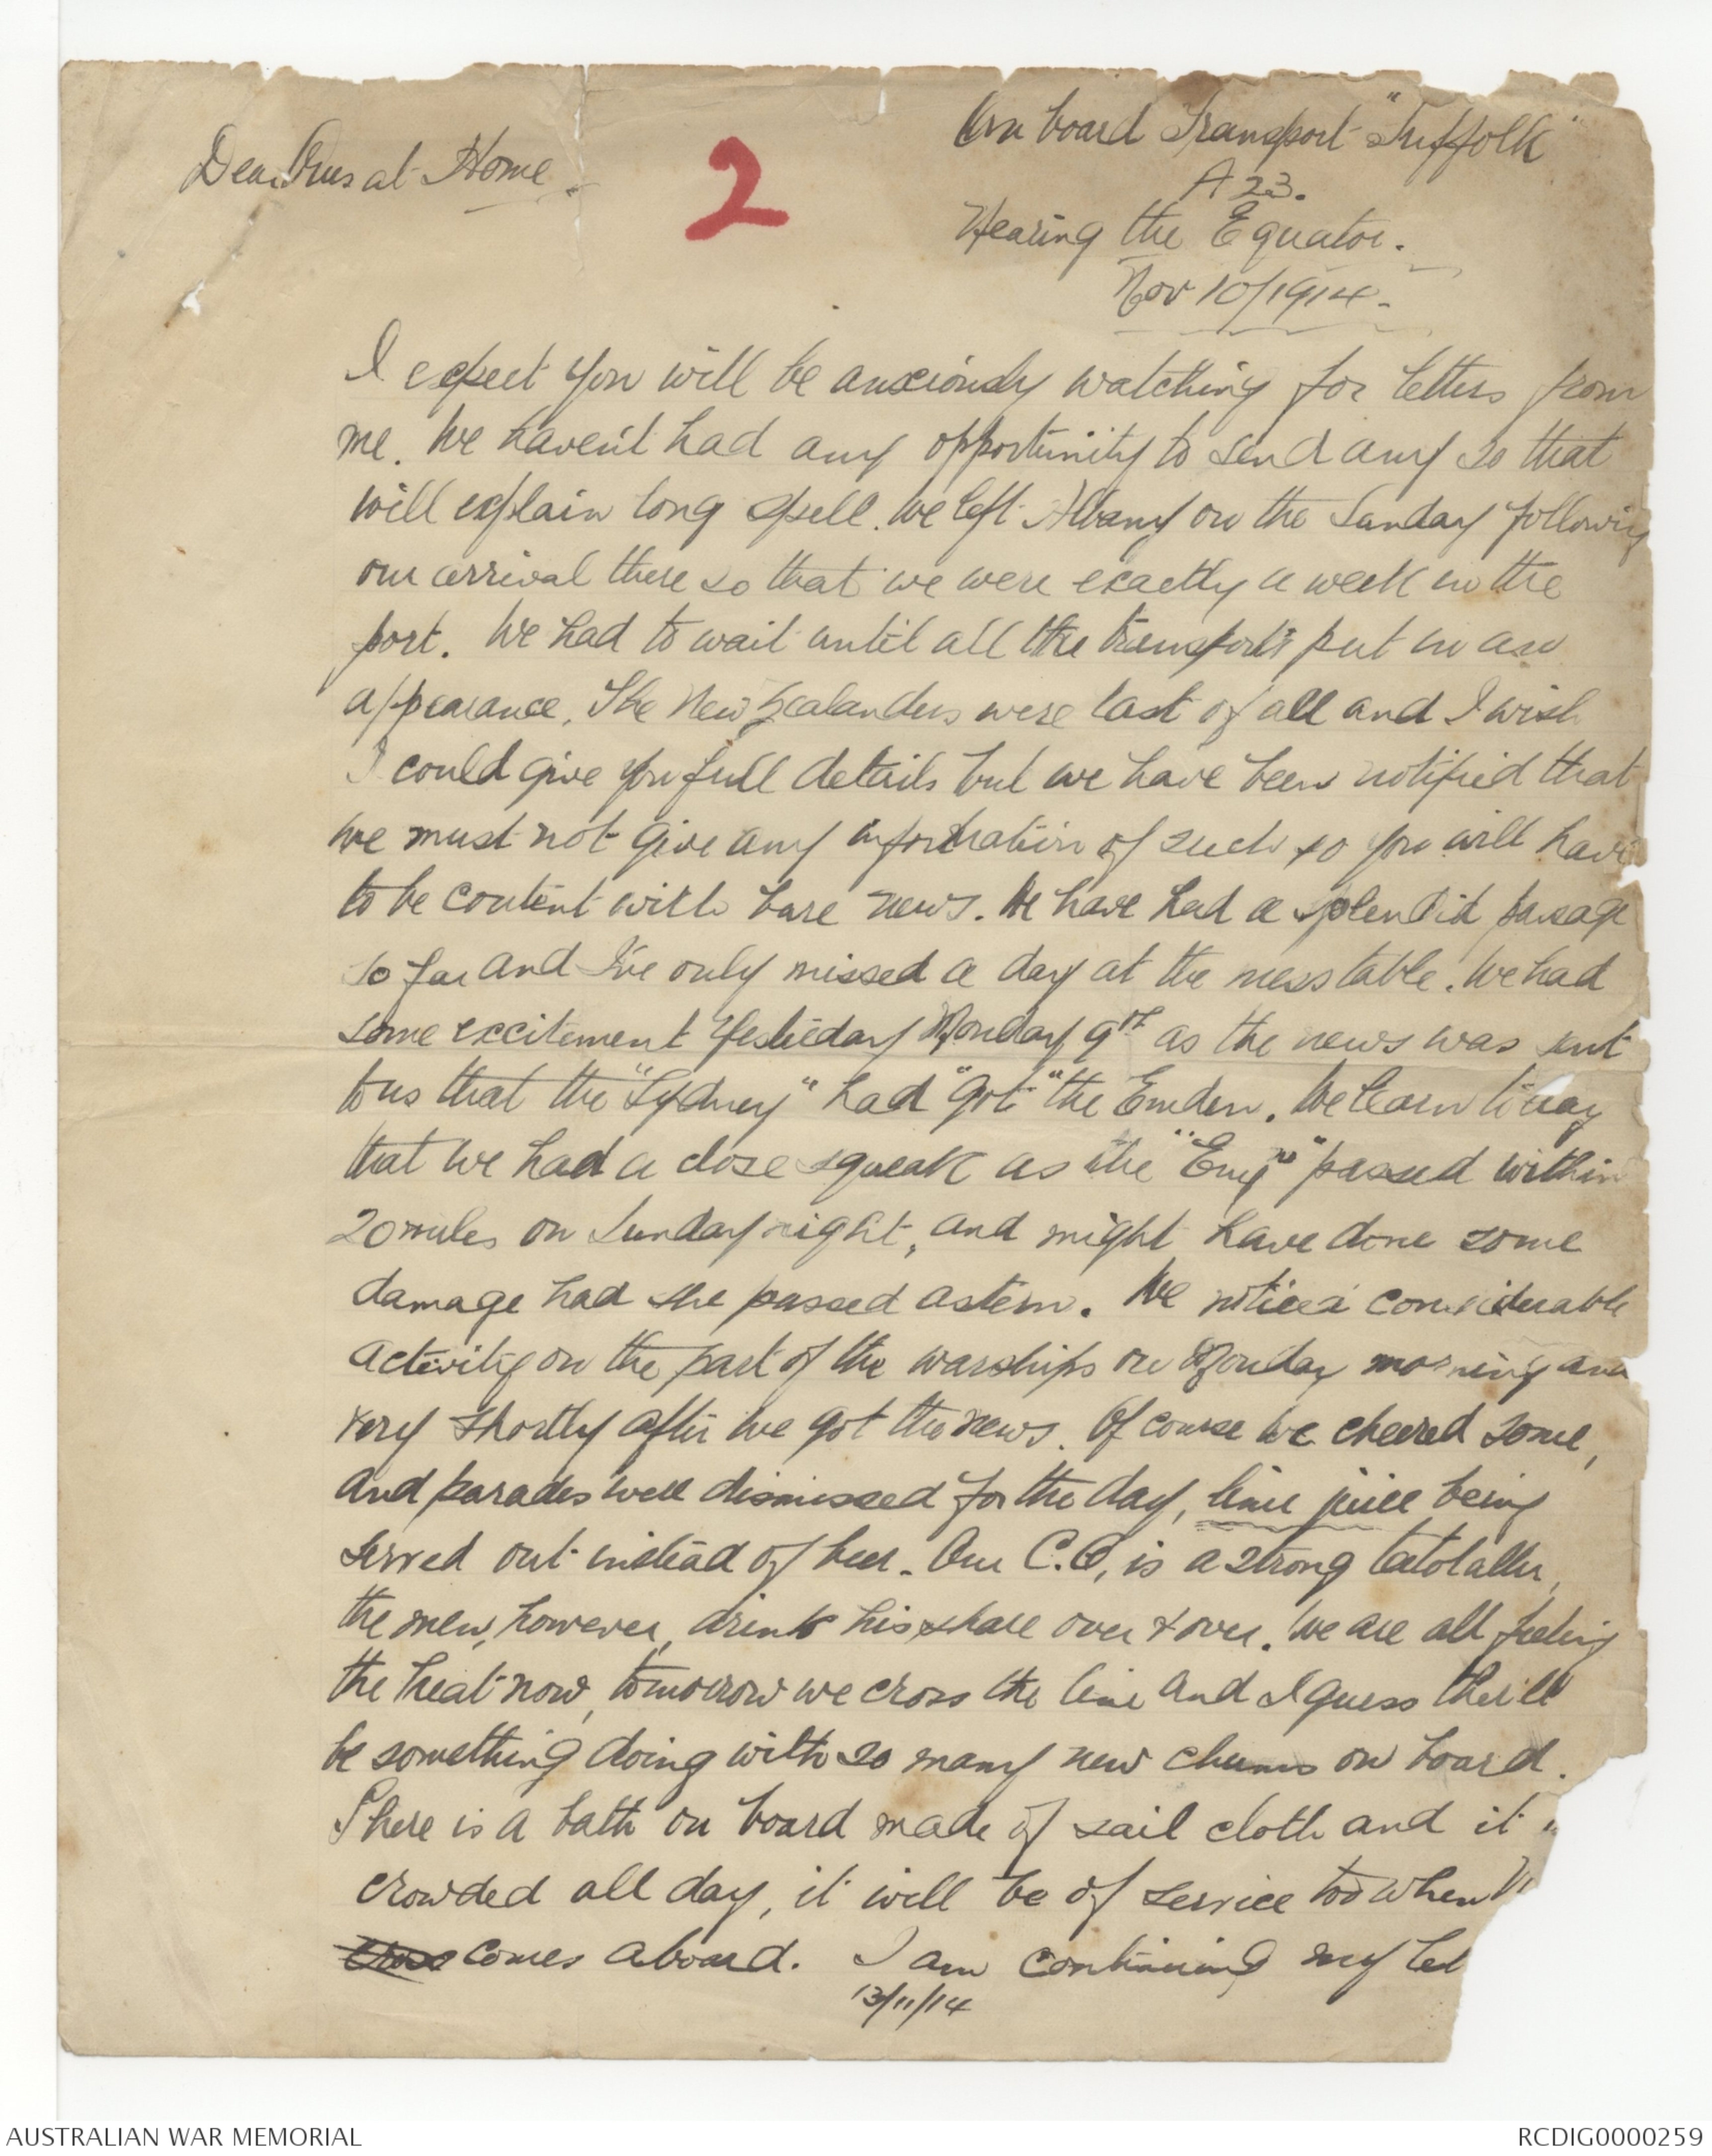 On board Transport "Suffolk"
A 23.
Dear Ones at Home.
2
Nearing the Equator.
Nov 10/1914.
I expect you will be anxiously watching for letters from
me. We haven't had any opportunity to send any so that
will explain long spell. We left Albany on the Sunday following
our arrival there so that we were exactly a week in the
port. We had to wait until all the transports put in an
appearance. The New Zealanders were last of all and I wish
I could give you full details but we have been notified that
we must not give any information of such so you will have
to be content with bare news. We have had a splendid passage
so far and I've only missed a day at the mess table. We had
some excitement yesterday Monday 9th as the news was sent
to us that the "Sydney" had "got" the Emden. We learn today
that we had a close squeak as the "Emy" passed within
20 miles on Sunday night, and might have done some
damage had she passed astern. We noticed considerable
activity on the part of the warships on Monday morning and
very shortly after we got the news. Of course we cheered some,
and parades well dismissed for the day, lime juice being
served out instead of beer. Our C.O. is a strong tetotaller,
the men, however, drink his share over & over. We are all feeling
the heat now, tomorrow we cross the line and I guess ther'll
be something doing with so many new chums on board.
There is a bath on board made of sail cloth and it
crowded all day, it will be of service too when
comes aboard. I am continuing my let
13/11/14
AUSTRALIAN WAR MEMORIAL
RCDIG0000259